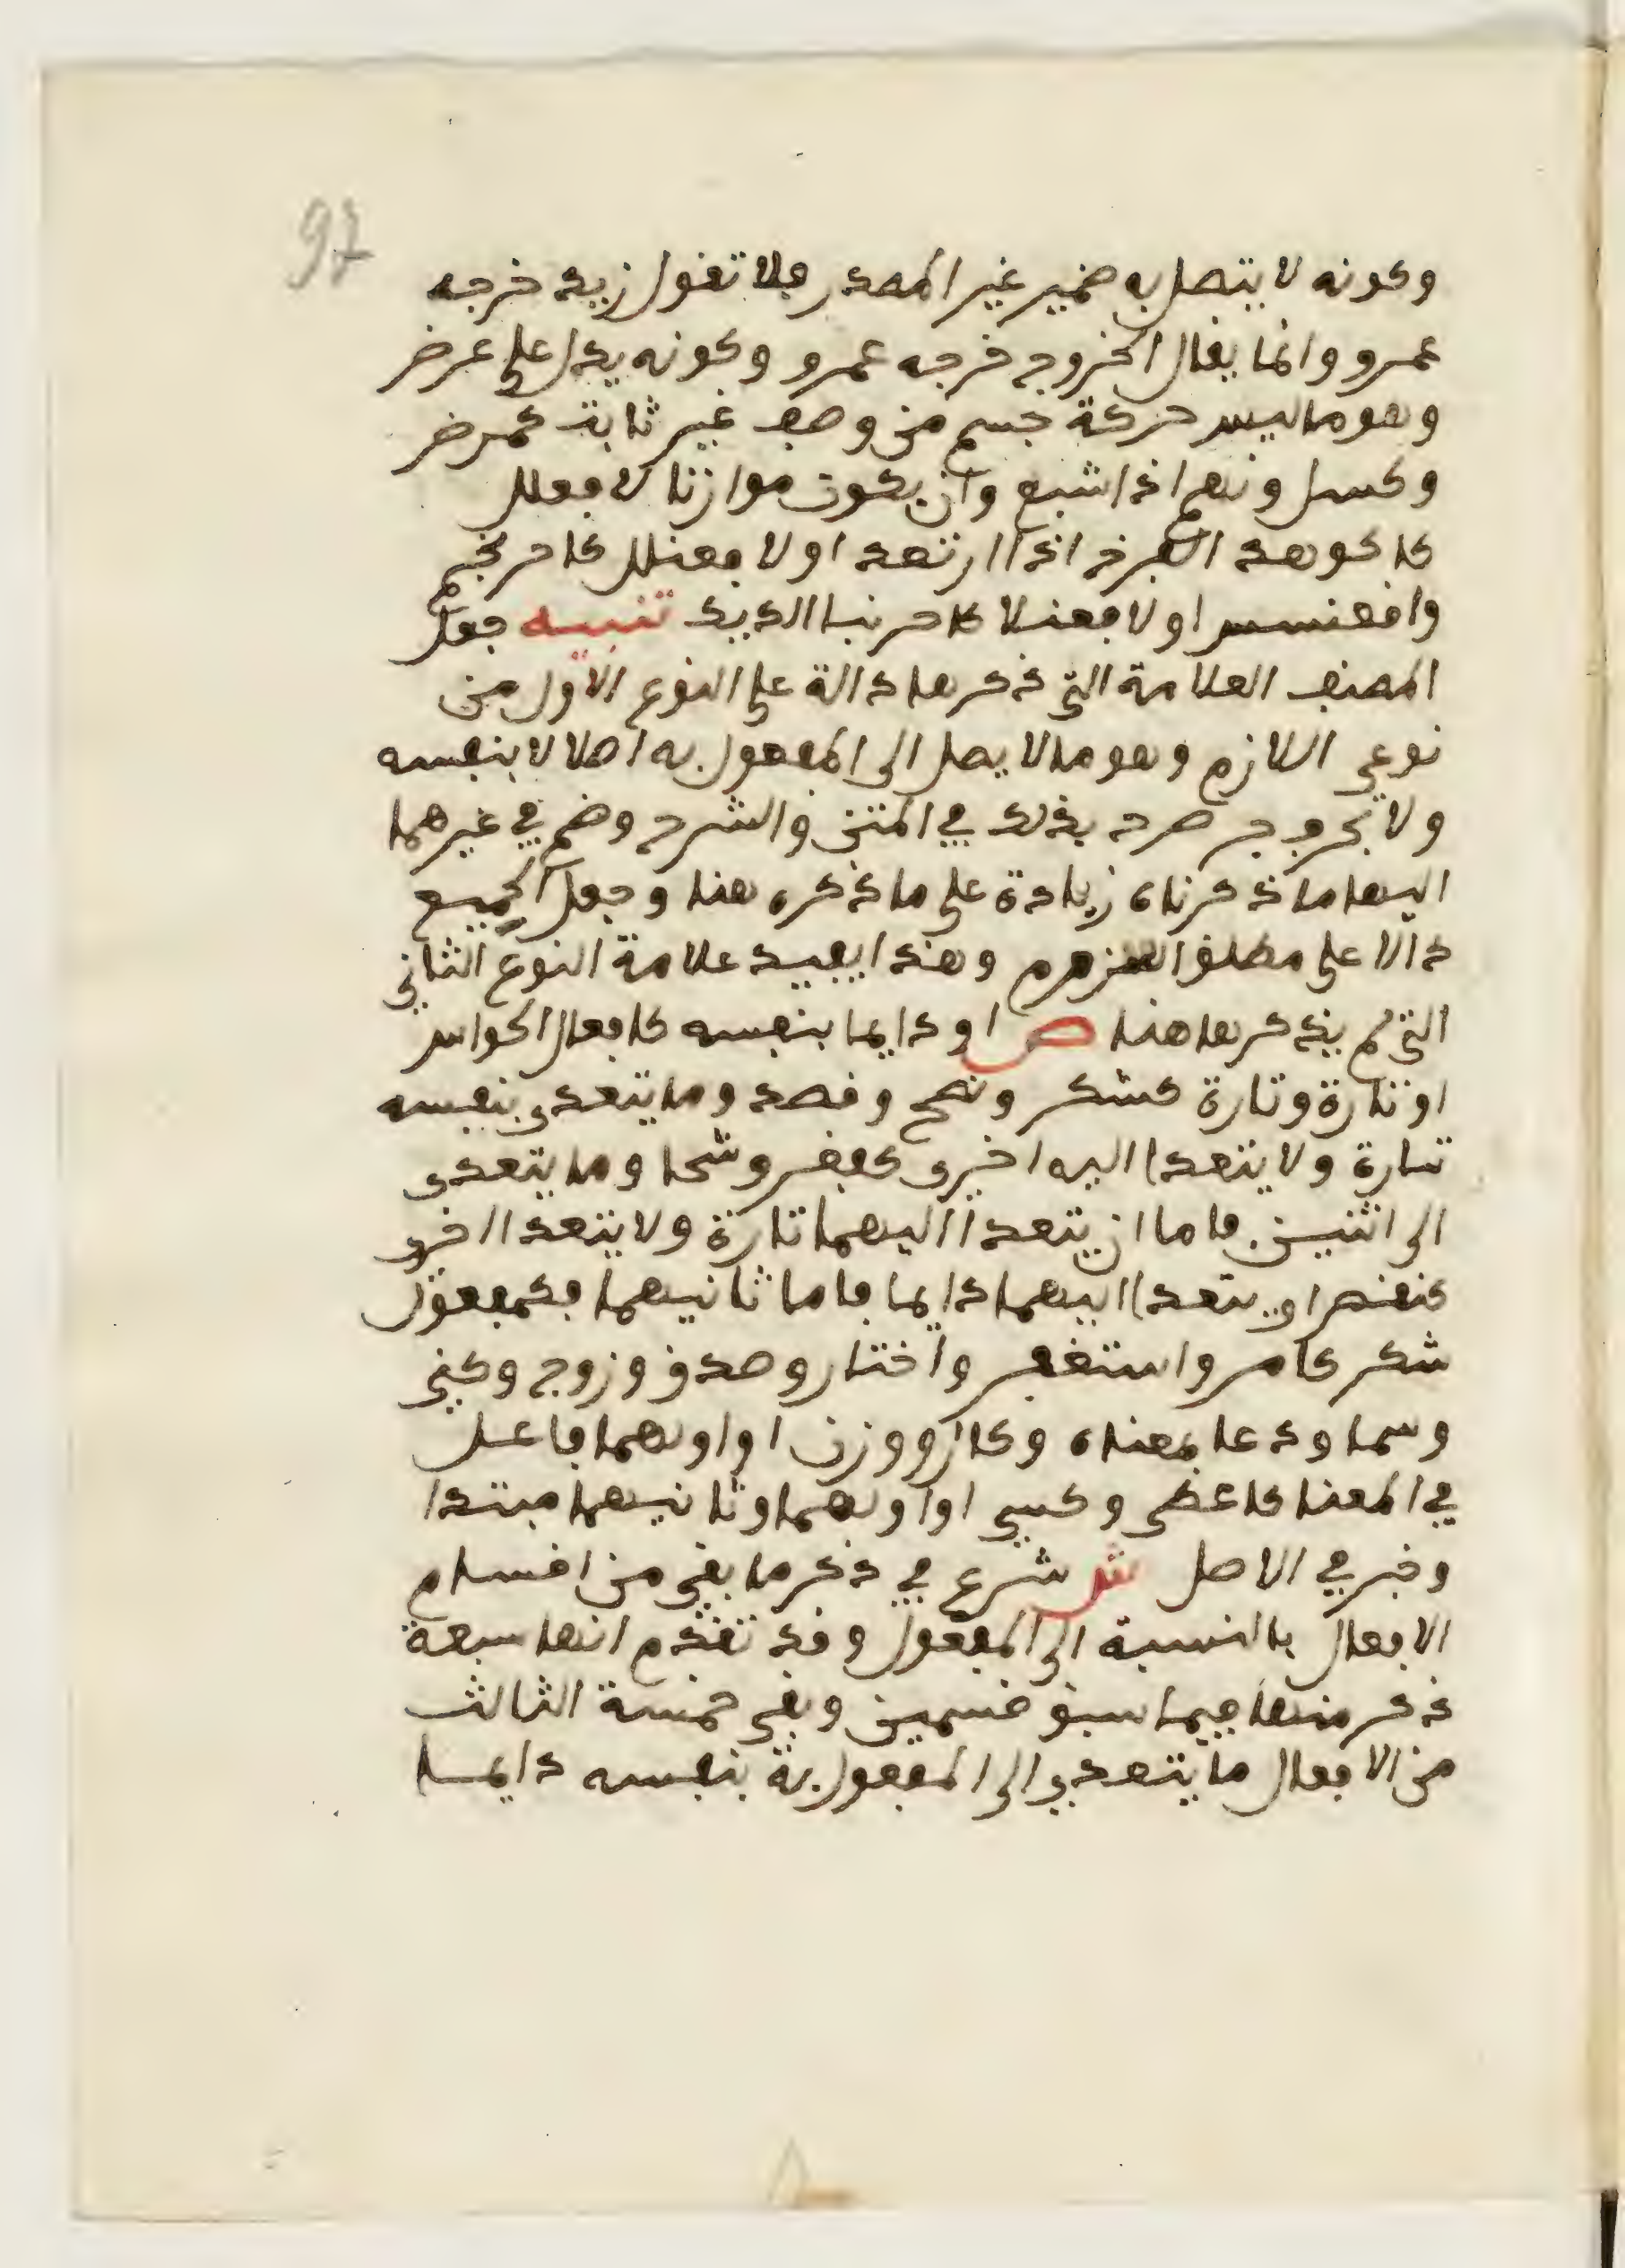 97
وكونه لا يتصل به ضمير غير المصدر فلا تقول زيد خرجه
عمرو وانما يقال الخروج خرجه عمرو وكونه يدل على عرض
وهو ما ليس حركة جسم من وصف غير ثابت كمرض
وكسل ونهم اذا شبع وان يكون موازنا لافعلل
كاكوهد الفرخ اذا ارتعد او لافعنلل كاحرنجم
واقعنسس او لافعنلا كاحرنبا الديك تنبيه جعل
المصنف العلامة التي ذكرها دالة على النوع الاول من
نوعي اللازم وهو ما لا يصل الى المفعول به اصلا لا بنفسه
ولا بحرف جر صرح بذلك في المتن والشرح وضم في غيرهما
اليها ما ذكرناه زيادة على ما ذكره هنا وجعل الجميع
دالا على مطلق اللزوم وهذا يفيد علامة النوع الثاني
التي لم يذكرها هنا ص او دايما بنفسه كافعال الحواس
او تارة وتارة كشكر ونصح وقصد وما يتعدى بنفسه
تارة ولا يتعدا اليه اخرى كفغر وشحا وما يتعدى
الى اثنين فاما ان يتعدا اليهما تارة ولا يتعدا اخرى
كنقص او يتعدا اليهما دايما فاما ثانيهما فكمفعول
شكر كامر واستغفر واختار وصدق وزوج وكنى
وسما ودعا بمعناه وكال ووزن او اولهما فاعل
في المعنا كاعطى وكسى او اولهما وثانيهما مبتدا
وخبر في الاصل ش شرع في ذكر ما بقي من اقسام
الافعال بالنسبة الى المفعول وقد تقدم انها سبعة
ذكر منها فيما سبق قسمين وبقي خمسة الثالث
من الافعال ما يتعدى الى المفعول به بنفسه دايما